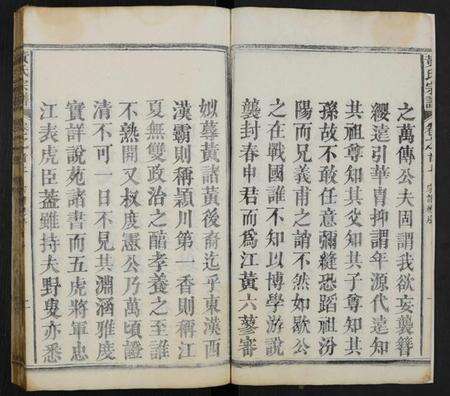 黃氏宗譜
之萬傳公夫固謂我欲妄襲簪
纓遠引華冑抑謂年源代遠知
其祖尊知其父知其子尊知其
孫故不敢任意彌縫恐蹈祖汾
陽而兄義甫之誚不然如歇公
之在戰國誰不知以博學游說
襲封春申君而爲江黃六蓼審
姒蓼黃諸黃後裔迄乎東漢酉
漢霸則稱潁川第一香則稱江
夏無雙政治之酷孝養之至誰
不熟聞又叔度憲公乃萬頃證
清不可一日不見其淵涵雅度
實詳說苑諸書而五虎將軍忠
江表虎臣蓋雖持夫野叟亦悉